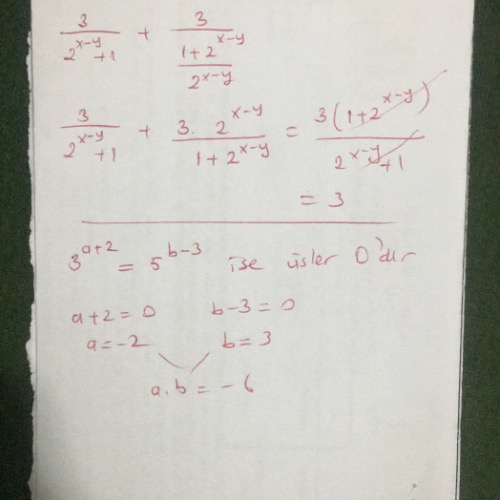 3/(2^(x-y)+1) + 3/((1+2^(x-y))/2^(x-y))
3/(2^(x-y)+1) + 3.2^(x-y)/(1+2^(x-y)) = 3(1+2^(x-y))/(2^(x-y)+1)
= 3
3^(a+2) = 5^(b-3) ise üsler 0'dır
a+2=0 b-3=0
a=-2 b=3
a.b=-6